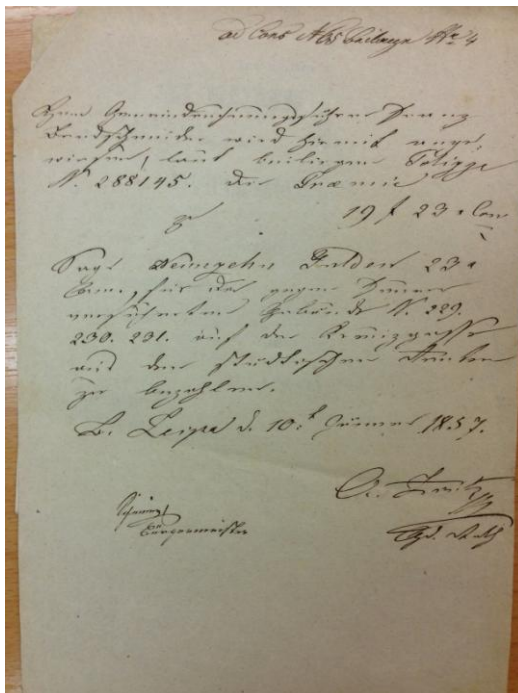 ad Cons N 65 Beilage Nr 4
Gemeinderechnungsführer Franz
wird hiemit ange-
wiesen, laut beiliegen Polizze
N. 288145. die Præmie
pr 19 f 23 x Con
Sage Neunzehn Gulden 23 x
Conv, für das gegen Feuer
versicherte Gebäude N. 229.
230. 231. auf der Kreuzgasse
aus den städtischen Renten
zu bezahlen.
B. Leipa d. 10. 1857.
Bürgermeister